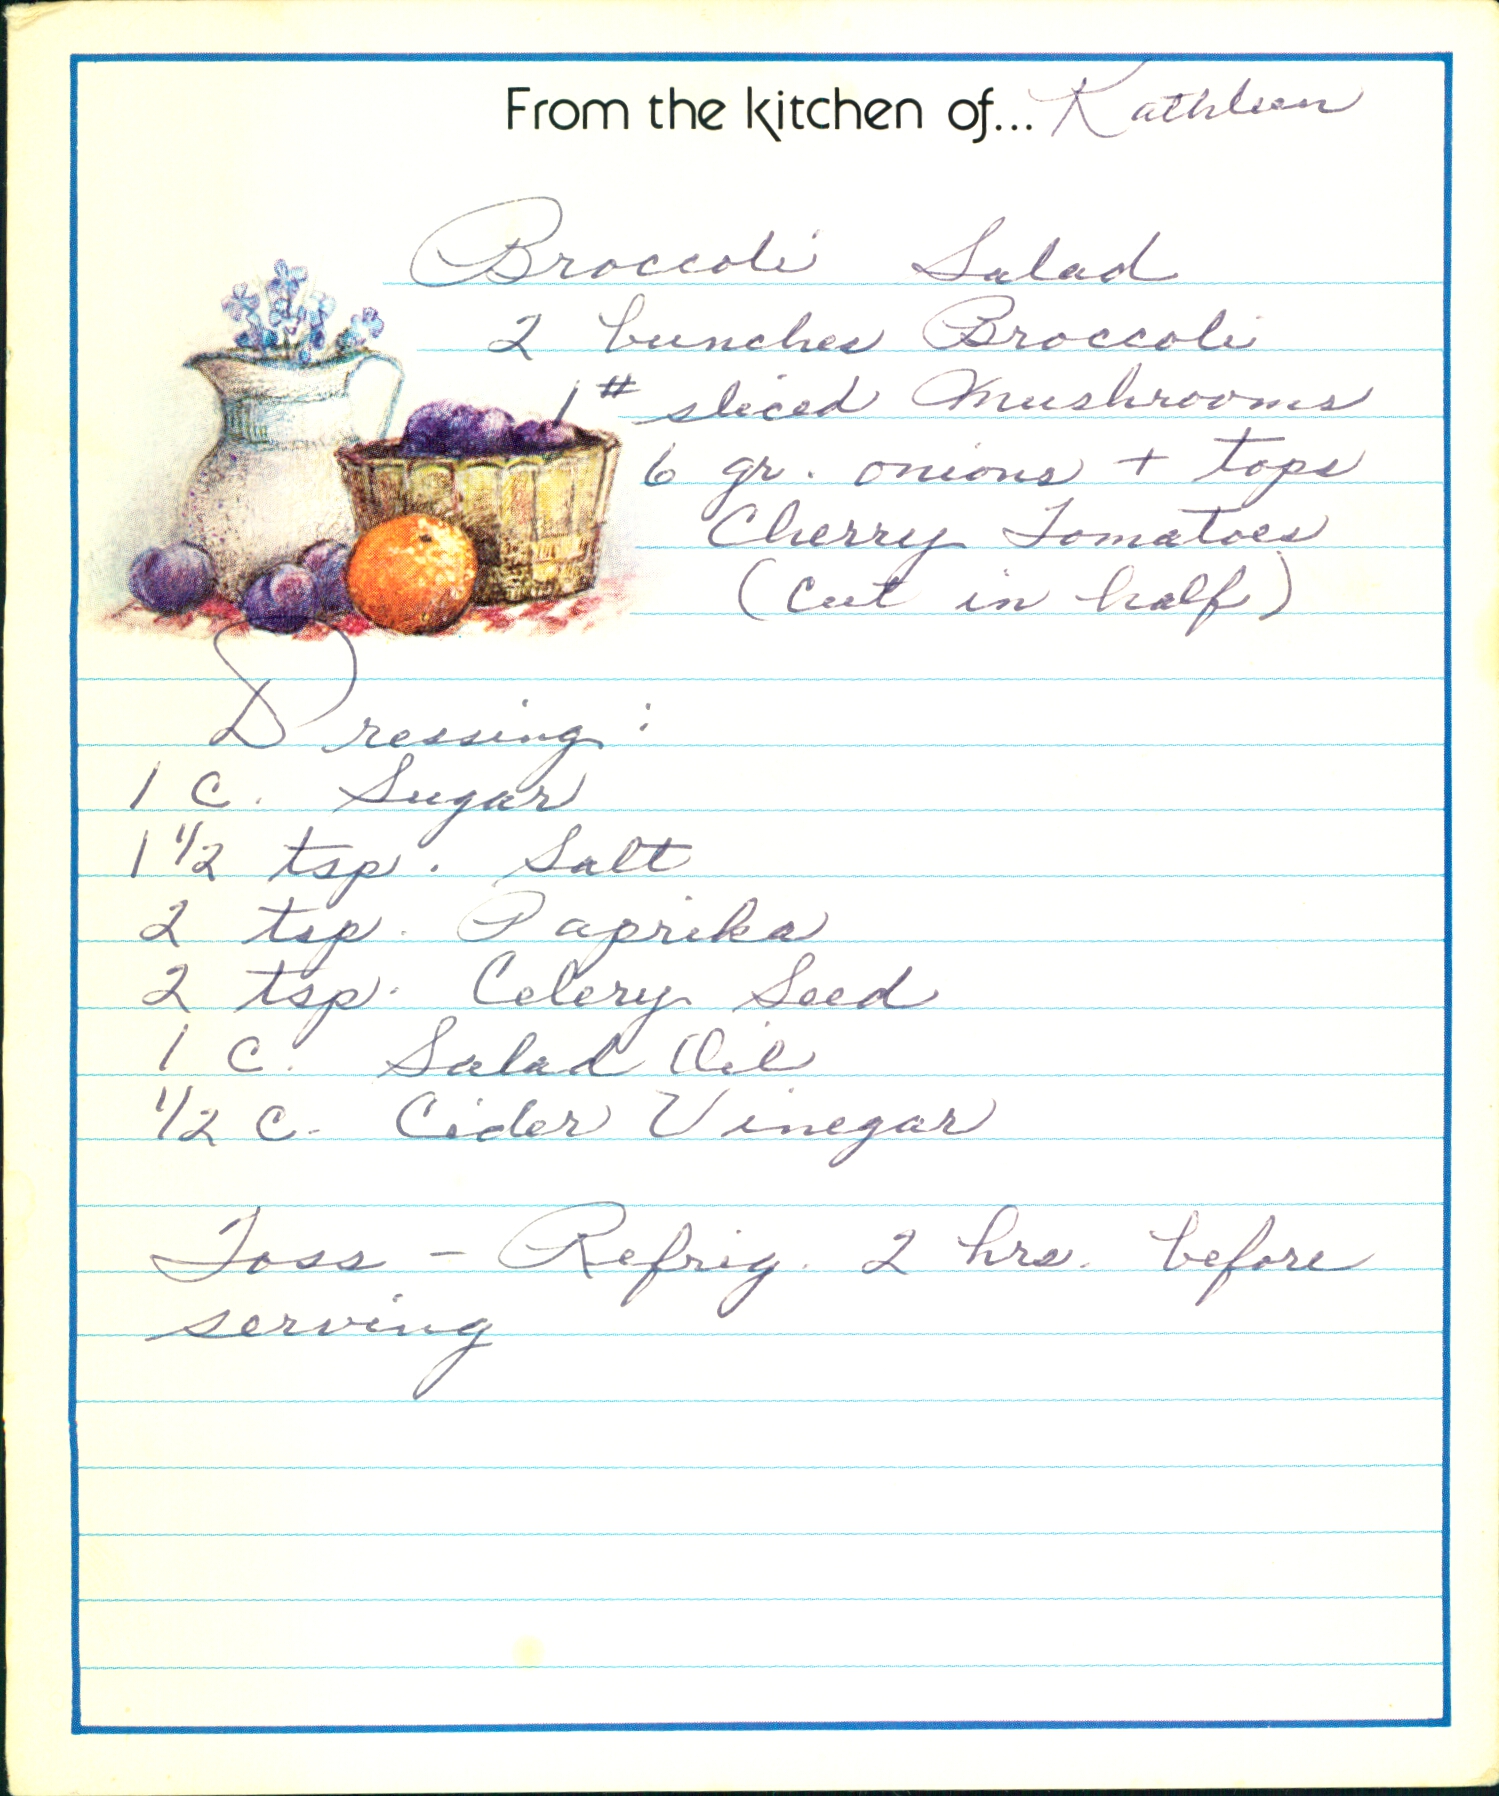 From the kitchen of... Kathleen
Broccoli Salad
2 bunches Broccoli
1# sliced Mushrooms
6 gr. onions + tops
Cherry Tomatoes
(cut in half)
Dressing:
1 c. Sugar
1 1/2 tsp. Salt
2 tsp. Paprika
2 tsp. Celery Seed
1 c. Salad Oil
1/2 c. Cider Vinegar
Toss - Refrig. 2 hrs. before
serving